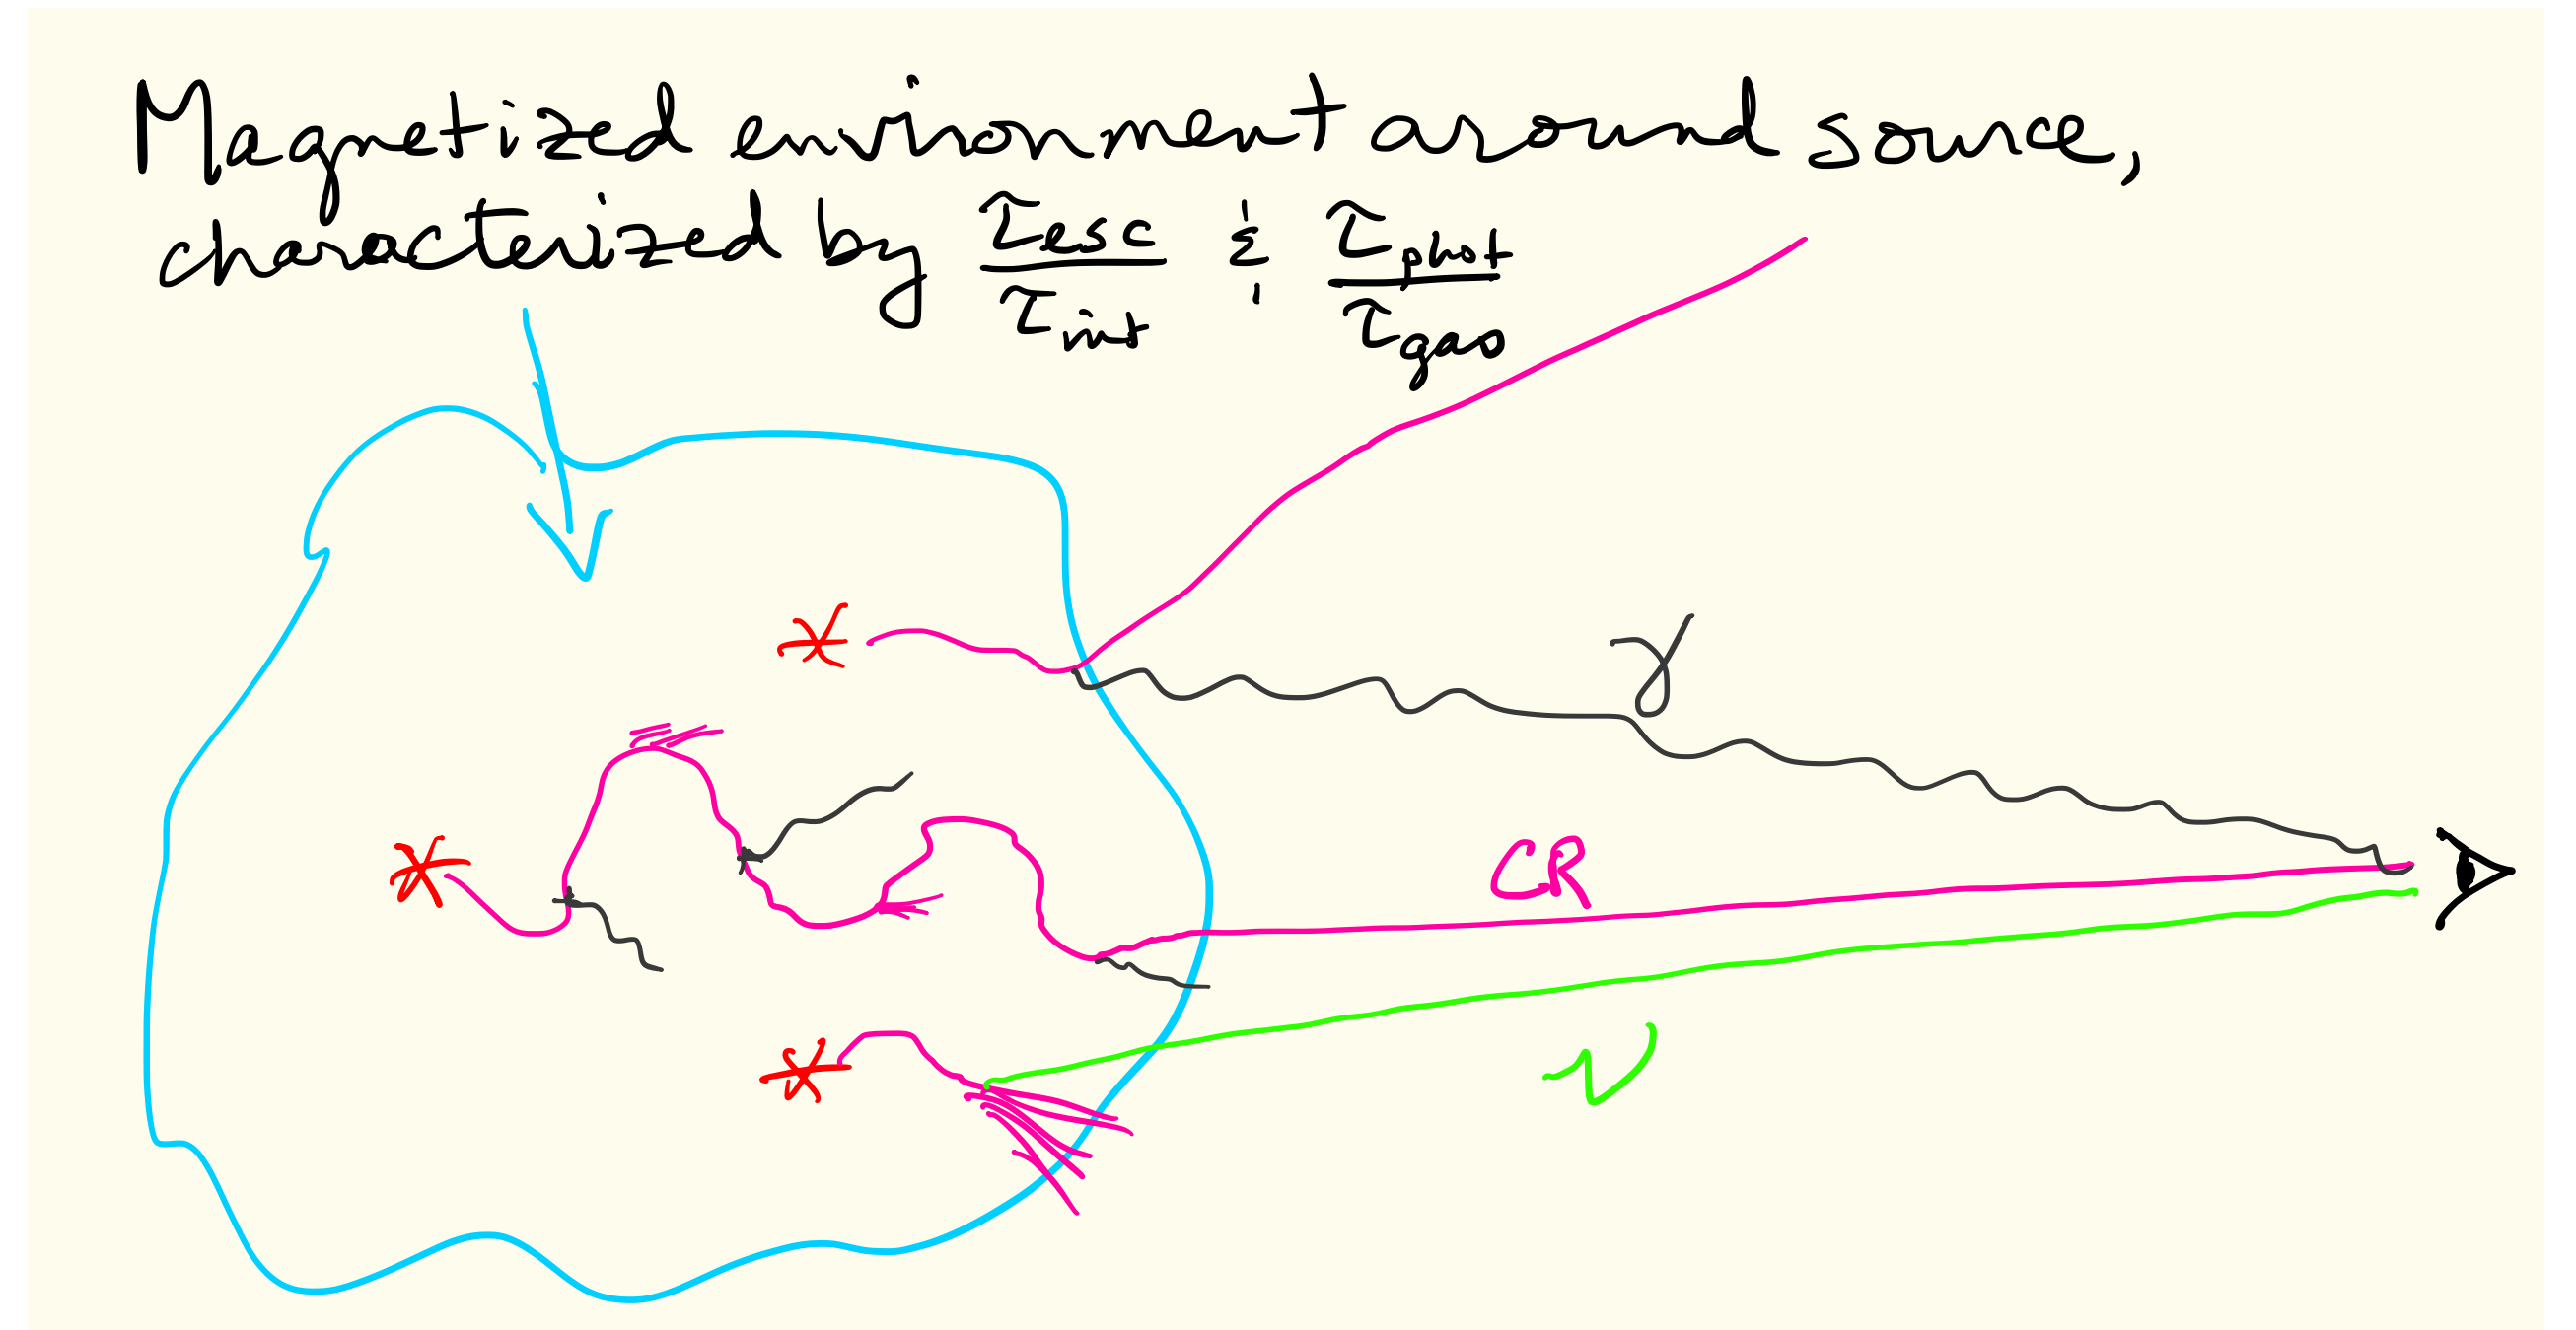 Magnetized environment around source,
characterized by τesc/τint & τphot/τgas
γ
CR
ν